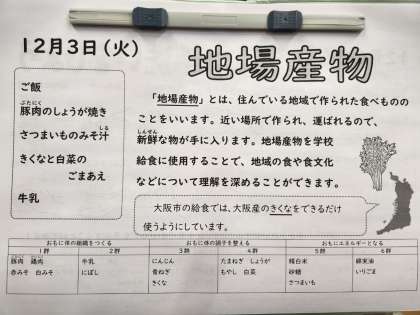 12月3日(火)
地場産物
ご飯
豚肉のしょうが焼き
ぶたにく
さつまいものみそ汁
しる
きくなと白菜の
ごまあえ
牛乳
「地場産物」とは、住んでいる地域で作られた食べものの
ことをいいます。近い場所で作られ、運ばれるので、
しんせん
新鮮な物が手に入ります。地場産物を学校
給食に使用することで、地域の食や食文化
などについて理解を深めることができます。
大阪市の給食では、大阪産のきくなをできるだけ
使うようにしています。
おもに体の組織をつくる おもに体の調子を整える おもにエネルギーとなる
1群 2群 3群 4群 5群 6群
豚肉 鶏肉 牛乳 にんじん たまねぎ しょうが 精白米 綿実油
赤みそ 白みそ にぼし 青ねぎ もやし 白菜 砂糖 いりごま
きくな さつまいも